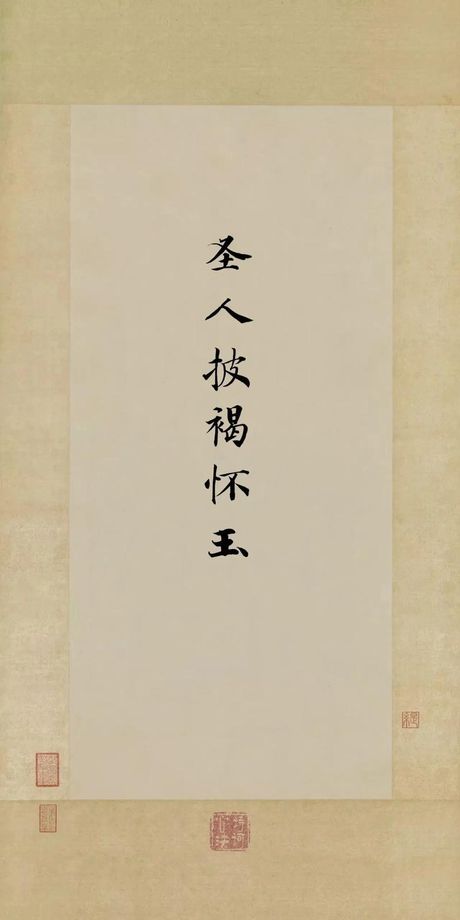 圣人披褐怀玉